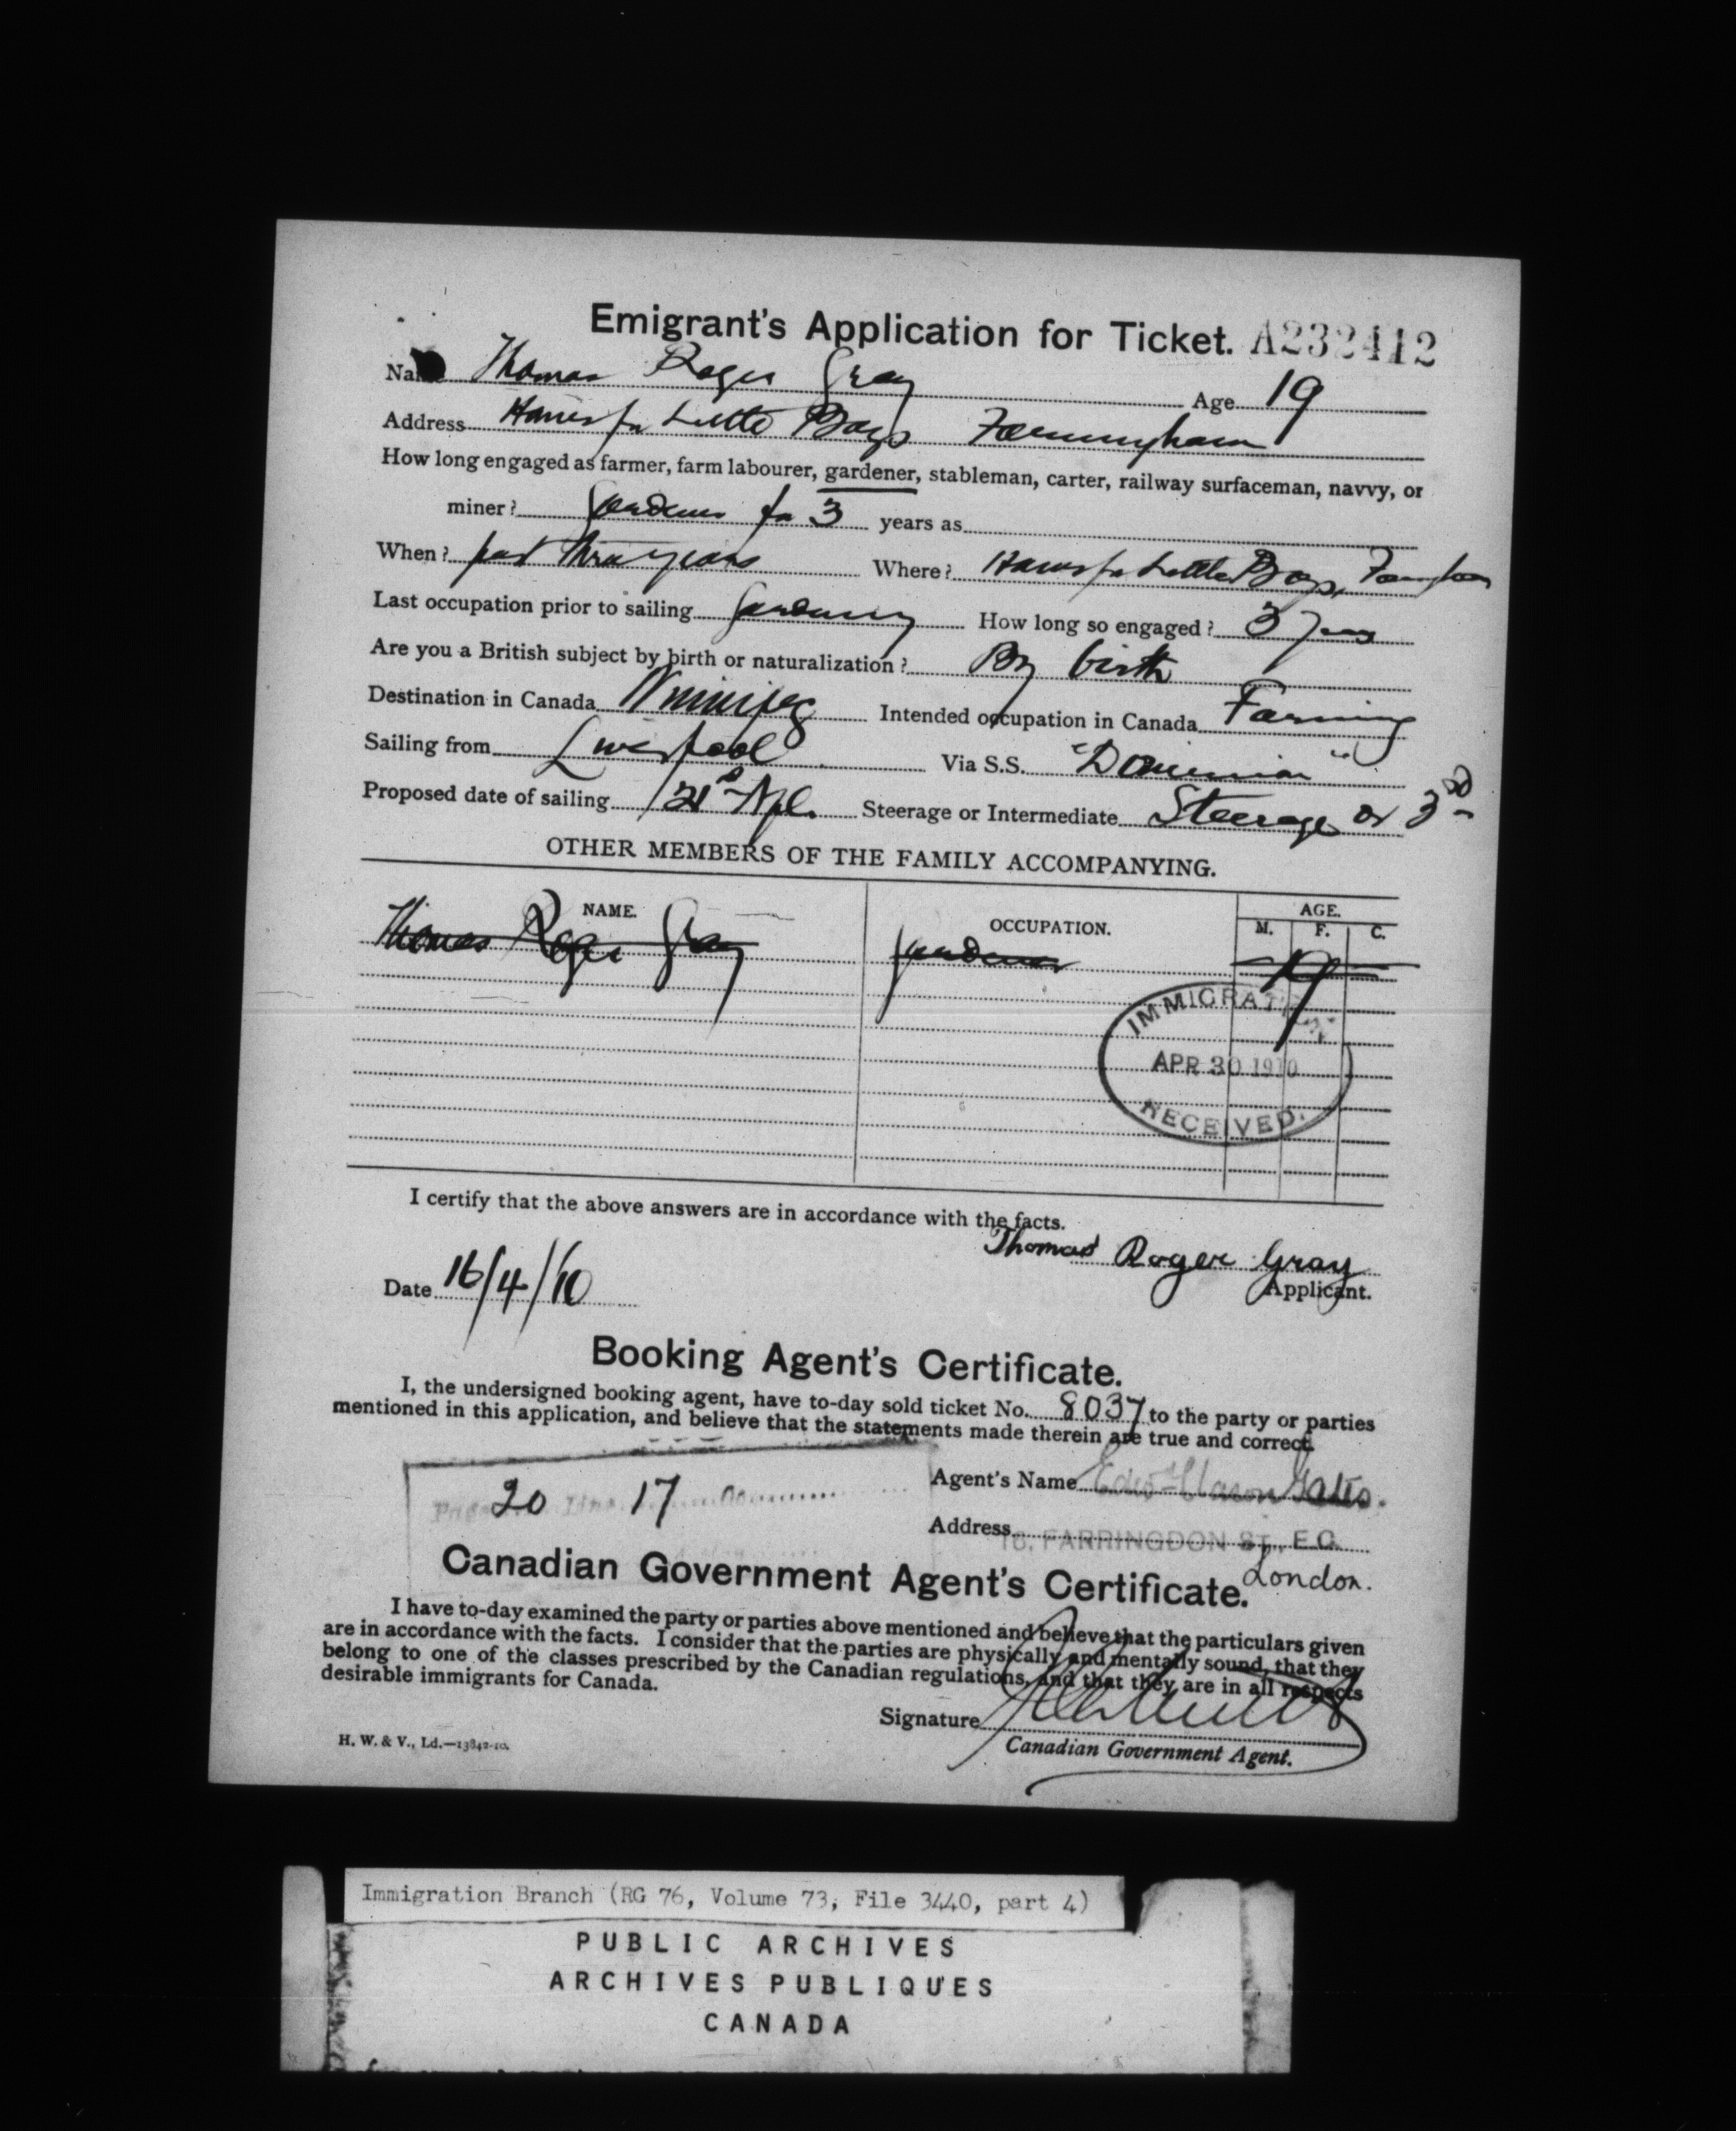 Emigrant's Application for Ticket. A232412
Name Thomas Roger Gray Age 19
Address Homes for Little Boys Farningham
How long engaged as farmer, farm labourer, gardener, stableman, carter, railway surfaceman, navvy, or
miner? Gardener for 3 years as
When? past three years Where? Homes for Little Boys,
Last occupation prior to sailing Gardening How long so engaged? 3 years
Are you a British subject by birth or naturalization? By birth
Destination in Canada Winnipeg Intended occupation in Canada Farming
Sailing from Liverpool Via S.S. "Dominion"
Proposed date of sailing 21st Apl. Steerage or Intermediate Steerage or 3rd
OTHER MEMBERS OF THE FAMILY ACCOMPANYING.
NAME. OCCUPATION. AGE.
M. F. C.
Thomas Roger Gray gardener 19
IMMIGRATION
APR 30 1910
RECEIVED.
I certify that the above answers are in accordance with the facts.
Thomas Roger Gray
Date 16/4/10 Applicant.
Booking Agent's Certificate.
I, the undersigned booking agent, have to-day sold ticket No. 8037 to the party or parties
mentioned in this application, and believe that the statements made therein are true and correct.
20 17
Agent's Name Gates.
Address FARRINGDON ST., E.C.
London.
Canadian Government Agent's Certificate.
I have to-day examined the party or parties above mentioned and believe that the particulars given
are in accordance with the facts. I consider that the parties are physically and mentally sound, that they
belong to one of the classes prescribed by the Canadian regulations, and that they are in all respects
desirable immigrants for Canada.
Signature
Canadian Government Agent.
H. W. & V., Ld.—13842-10.
Immigration Branch (RG 76, Volume 73, File 3440, part 4)
PUBLIC ARCHIVES
ARCHIVES PUBLIQUES
CANADA